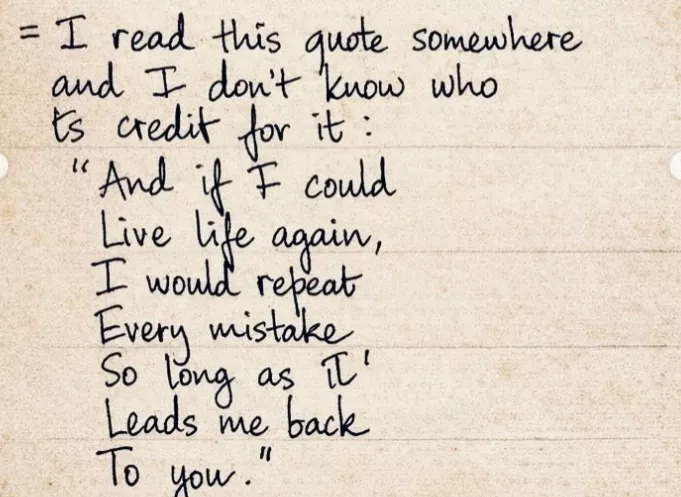 = I read this quote somewhere
and I don't know who
ts credit for it :
"And if I could
Live life again,
I would repeat
Every mistake
So long as it'
Leads me back
To you."